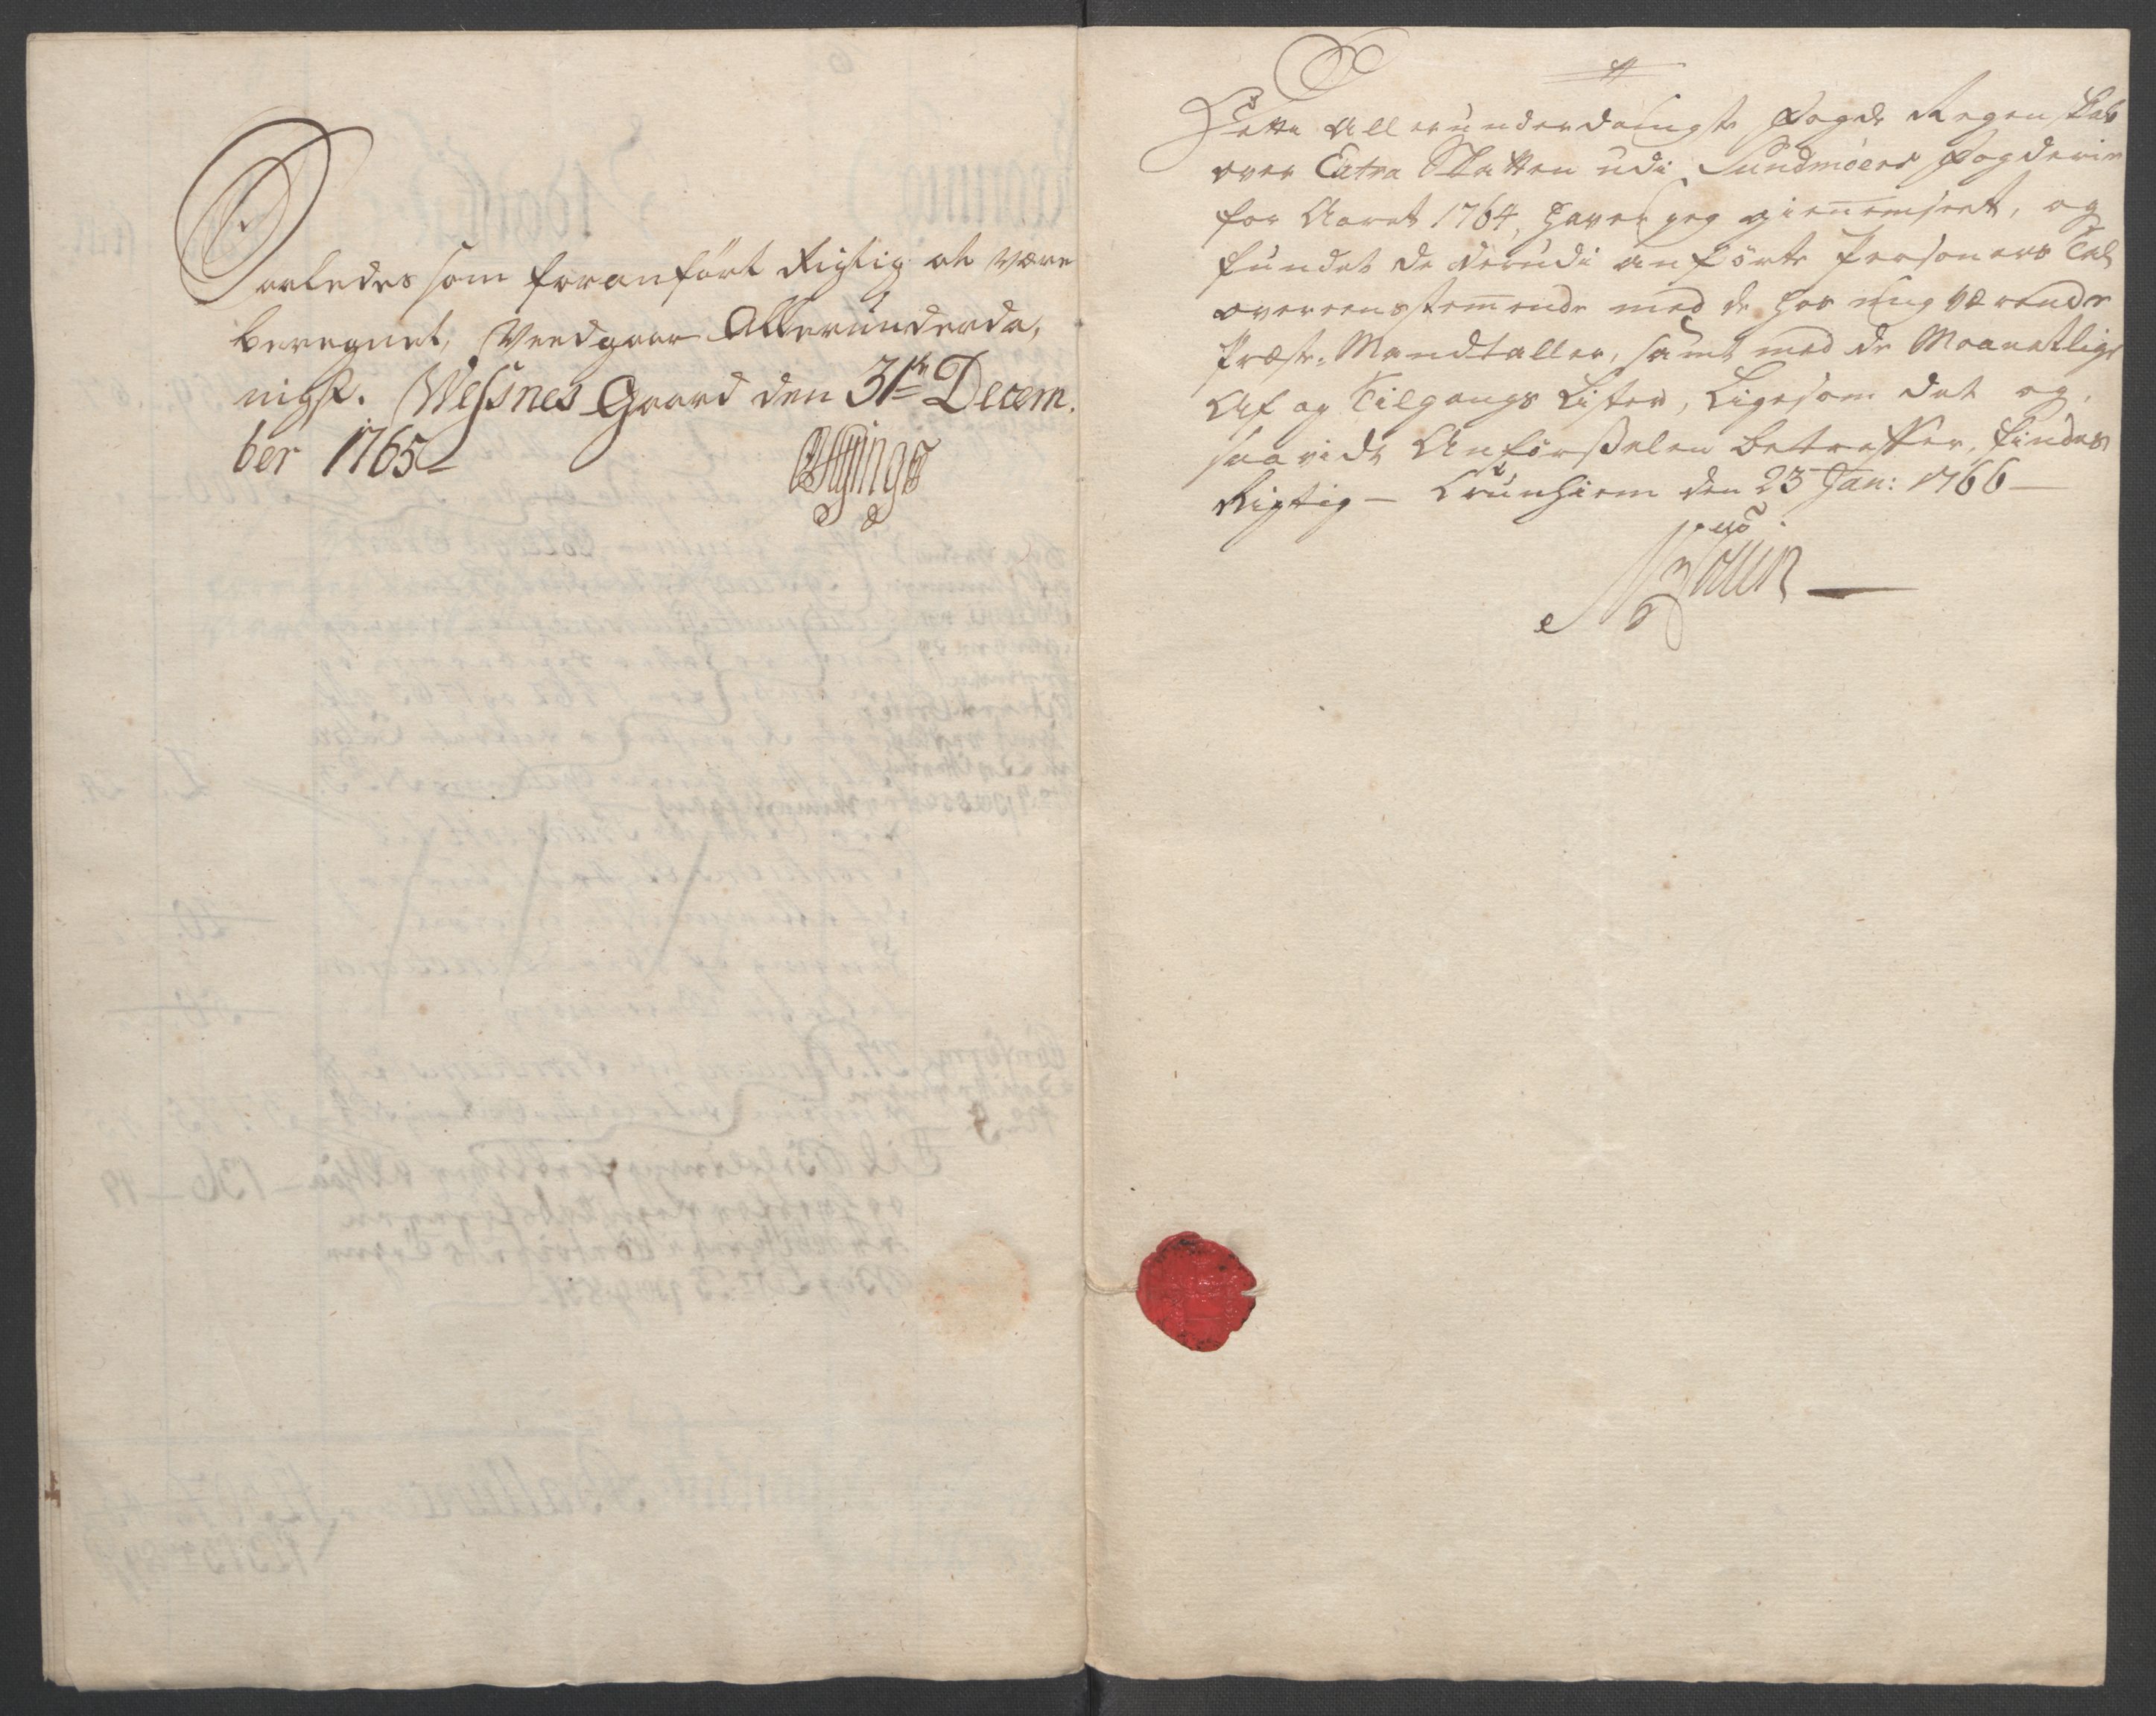 Saaledes som foranført Rigtig at være
beregnet, Vendgaar Allerunderda,
nigst. Wessnes Gaard den 31te Decem,
ber 1765
Dette Allerunderdanigste Fogde Regenskab
over Extra Skatten udi Sundmøers Fogderie
for Aaret 1764, haver jeg gienemseet, og
fundet de derudi anførte Personers Tal
overeenstemende med de hos mig værende
Præste-Mandtaller, samt med de Maanetlige
Af og Tilgangs Lister, Ligesom det og,
saavidt Anførselen betreffer, findes
Rigtig – Trundhiem den 23 Jan: 1766 –